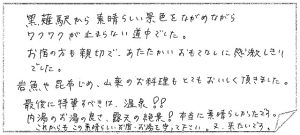 黒薙駅から素晴らしい景色をながめながら
ワクワクが止まらない道中でした。
お宿の方も親切で、あたたかいおもてなしに感激しきり
でした。
岩魚や昆布じめ、山菜のお料理もとてもおいしく頂きました。
最後に特筆すべきは、温泉!!
内湯のお湯の良さ、露天の絶景!本当に素晴らしかったです。
これからもこの素晴らしいお宿・お湯を守って下さい。又、来たいです。